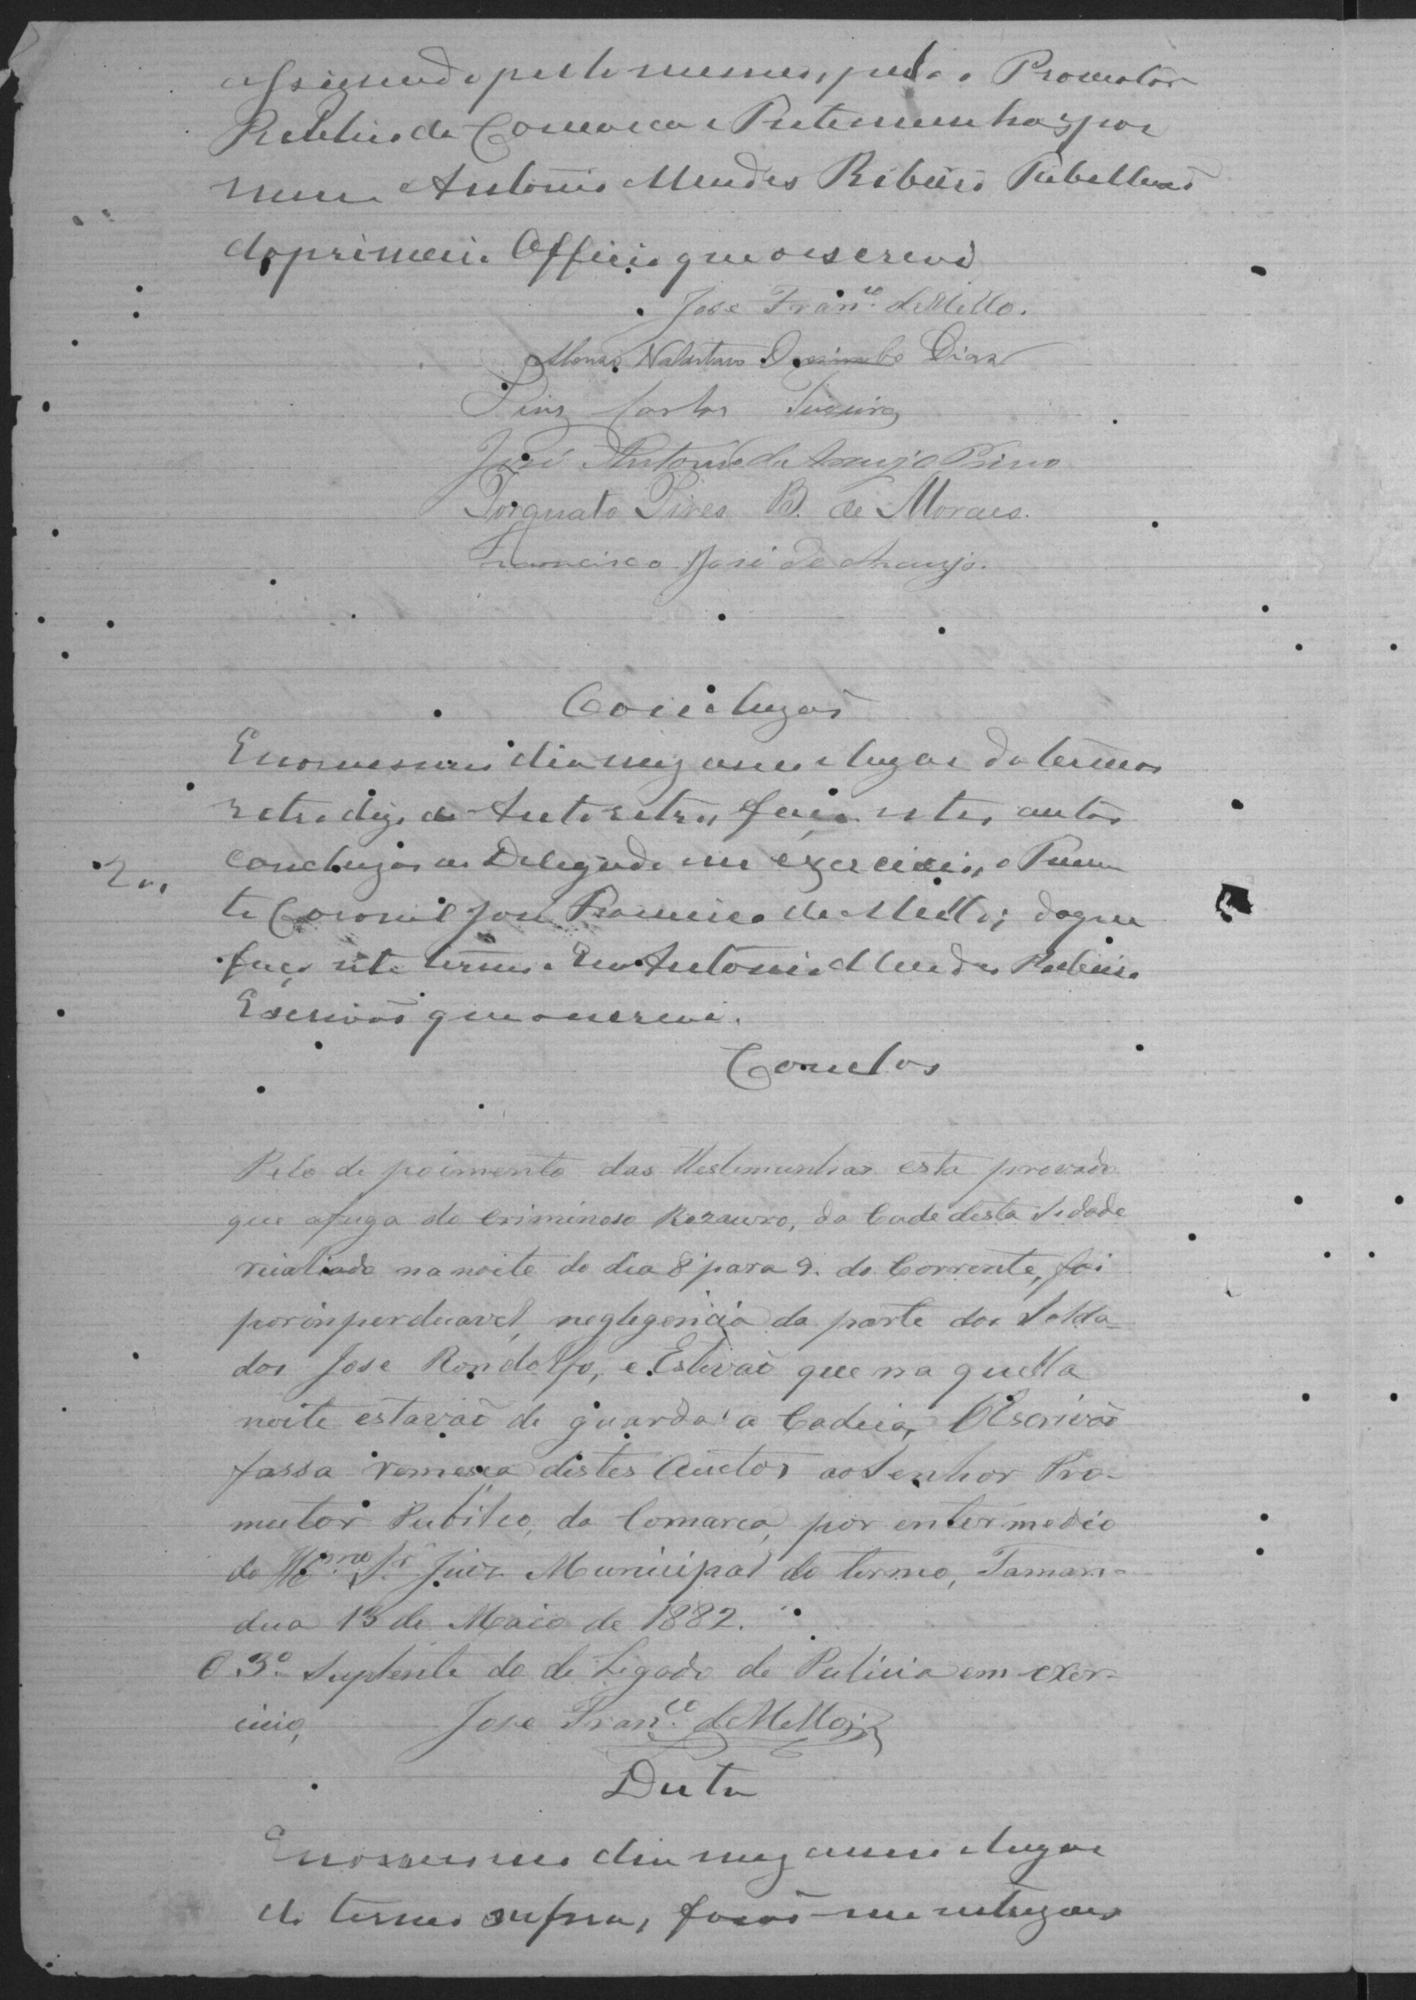 assignado pello mesmo, pelo o Promotor
Publico da Comarca e Testemunhas, por
mim Antonio Mendes Ribeiro Tabelliaõ
do primeiro Officio que o escrevi
Jose Fran.co de Mello.
Dias
Carlos
José Antonio de Araujo Primo
Torquato Pires B. de Moraes.
Francisco José de Araujo.
Concluzaõ
E no mesmo dia mez anno e lugar do termo
retro digo do Auto retro, faço estes autos
concluzos ao Delegado em exercicio, o Tenen
te Coronel José Francisco de Mello; do que
faço este termo. Eu Antonio Mendes Ribeiro
Escrivaõ que o escrevi.
Concluzos
Pelo de poimento das Testemunhas esta provado
que afuga do Criminoso Rozauro, da Cade desta Sidade
rialiada na noite do dia 8 para 9. do Corrente, foi
por inperduavel, neglegencia da parte dos Solda_
dos Jose Rondolfo, e Estevaõ que na quella
noite estavaõ de guarda a Cadeia, O Escrivaõ
fassa remessa distes Auctos ao Senhor Pro-
mutor Publico, da Comarca, por entermedio
do Illmo Sr. Juiz Municipal do termo, Taman-
dua 13 de Maio de 1882.
O 3º Suplente do de Legado de Pulicia em exer-
cicio, Jose Fran.co de Mello
Data
E no mesmo dia mez anno e lugar
do termo supra, foraõ me entregues